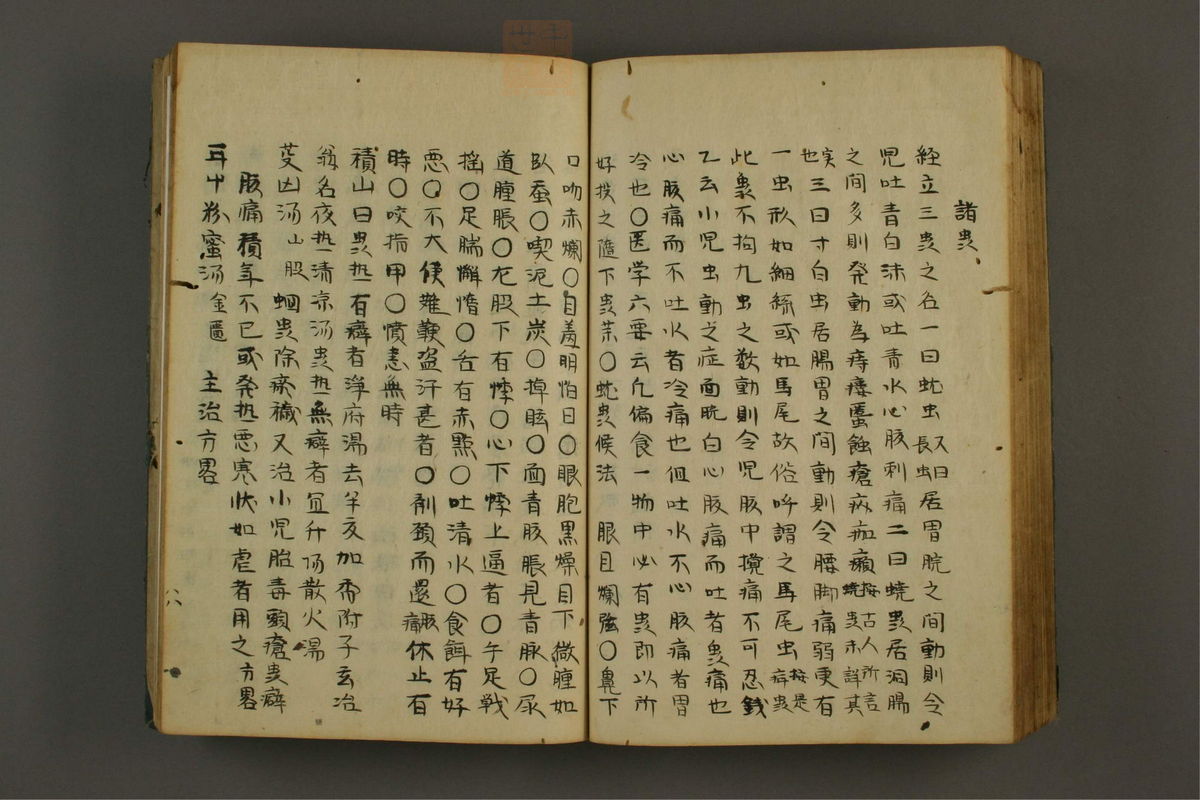 諸虫
経立三虫之名一曰蚘虫又曰長虫居胃脘之間動則令
児吐青白沫或吐青水心腹刺痛二曰蟯虫居洞腸
之間多則発動為痔瘻䘌蝕瘡疥疽癩按古人所言蟯虫未詳其
実也三曰寸白虫居腸胃之間動則令腰脚痛弱更有
一虫形如細絲或如馬尾故俗呼謂之馬尾虫按是病虫
此衆不拘九虫之数動則令児腹中攪痛不可忍銭
乙云小児虫動之症面㿠白心腹痛而吐者虫痛也
心腹痛而不吐火者冷痛也但吐水不心腹痛者胃
冷也〇医学六要云凢偏食一物中必有虫即以所
好投之隨下虫薬〇蚘虫候法 眼目爛弦〇鼻下
口吻赤爛〇目羞明怕日〇眼胞黒燥目下微腫如
臥蚕〇喫泥土炭〇掉眩〇面青腹脹見青脉〇尿
道腫脹〇左股下有悸〇心下悸上逼者〇手足戦
揺〇足腨懈惰〇舌有赤點〇吐清水〇食餌有好
悪〇不大便難鞕盗汗甚者〇削頚而還腹痛休止有
時〇咬指甲〇憤恚無時
積山曰虫热有癖者浄府湯去半夏加香附子玄治
翁名夜热清凉湯虫热無癖者宜升陽散火湯
茭凶湯山股 蛔虫除瘀穢又治小児胎毒頭瘡虫癖
腹痛積年不已或発热悪寒状如瘧者用之方畧
甘艸粉蜜湯金匱 主治方畧